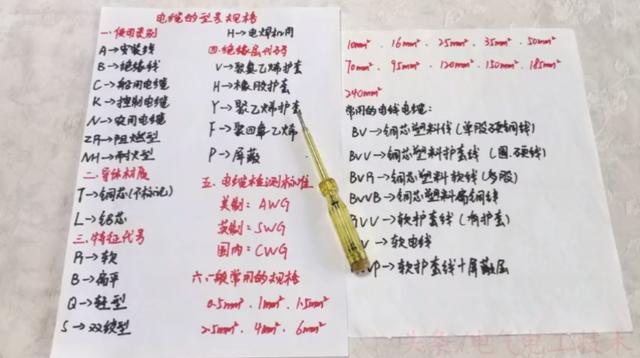 电缆的型号规格
一.使用类别
A→安装线
B→绝缘线
C→船用电缆
K→控制电缆
N→农用电缆
ZR→阻燃型
NH→耐火型
二.导体材质
T→铜芯(不标记)
L→铝芯
三.特征代号
R→软
B→扁平
Q→轻型
S→双绞型
H→电焊机用
四.绝缘层代码
V→聚氯乙烯护套
H→橡胶护套
Y→聚乙烯护套
F→聚四氟乙烯
P→屏蔽
五.电缆检测标准
美制:AWG
英制:SWG
国内:CWG
六.一般常用的规格
0.5mm²、1mm²、1.5mm²
2.5mm²、4mm²、6mm²
10mm²、16mm²、25mm²、35mm²、50mm²
70mm²、95mm²、120mm²、150mm²、185mm²
240mm²
常用的电线电缆:
BV→铜芯塑料线(单股硬铜线)
BVV→铜芯塑料护套线(圆.硬线)
BVR→铜芯塑料软线(多股)
BVVB→铜芯塑料扁铜线
RVV→软护套线(有护套)
V→软电线
VP→软护套线+屏蔽层
头条/电气电工技术